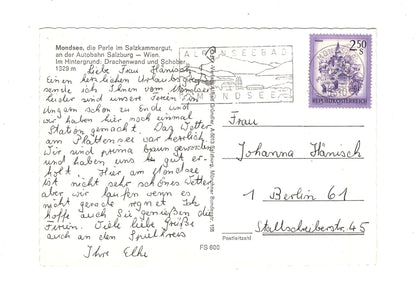 Mondsee, die Perle im Salzkammergut,
an der Autobahn Salzburg — Wien.
Im Hintergrund: Drachenwand und Schober,
1329 m
Liebe Frau Hänisch
Einen herzlichen Urlaubsgruß
sende ich Ihnen vom Mondsee
leider sind unsere Ferien
schon zu Ende und
wir haben hier noch einmal
Station gemacht. Das Wetter
am Plattensee war herrlich.
Wir sind prima braun geworden
und haben uns gut er-
holt. Hier am Mondsee
ist nicht sehr schönes Wetter
aber wir laufen wenn es
nicht gerade regnet. Ich
hoffe auch Sie genießen die
Ferien. Viele liebe Grüße
auch an den Spielkreis
Ihre Elke
ALPENSEEBAD
MONDSEE
FS 600
2.50
S
REPUBLIK ÖSTERREICH
Frau
Johanna Hänisch
1 Berlin 61
Stallschreiberstr. 45
Postleitzahl